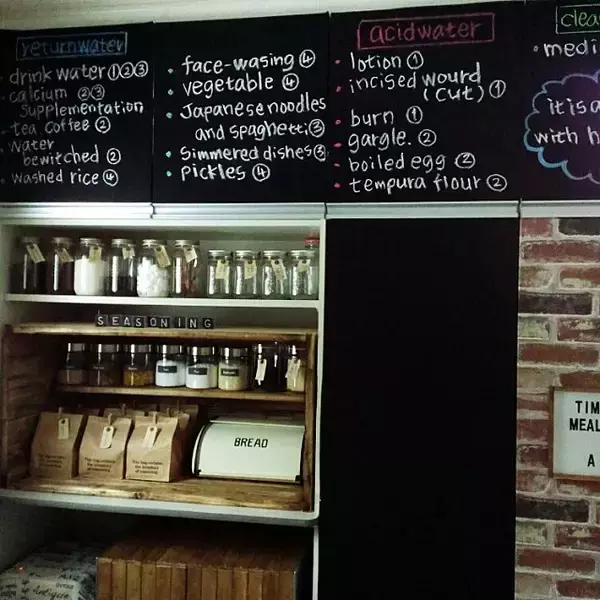 returnwater
• drink water ①②③
• calcium ②③
supplementation
• tea coffee ②
• water
bewitched ②
• washed rice ④
• face-wasing ④
• vegetable ④
• Japanese noodles
and spaghetti ③
• Simmered dishes ③
• pickles ④
acidwater
• lotion ①
• incised wourd
(cut) ①
• burn ①
• gargle. ②
• boiled egg ②
• tempura flour ②
clea
• medi
it is a
with h
SEASONING
BREAD
TIM
MEAL
A